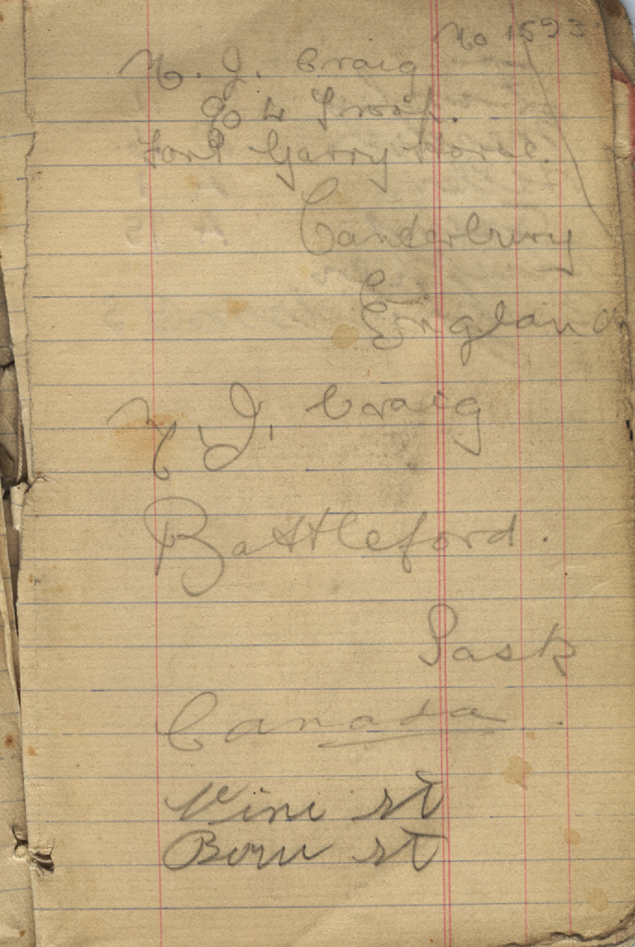 No 1593
N. J. Craig
No 4 Troop.
Fort Garry Horse.
Canterbury
England
N J. Craig
Battleford.
Sask
Canada.
Vine st
st